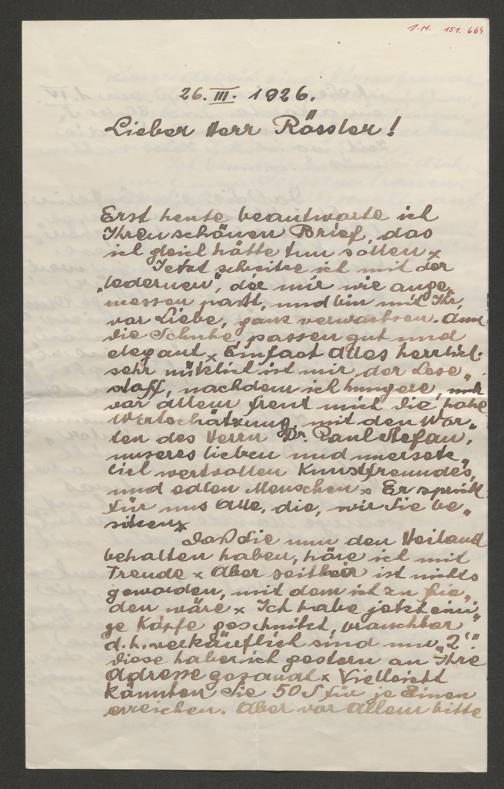 I.N. 151.664
26. III. 1926.
Lieber Herr Rössler!
Erst heute beantworte ich
Ihren schönen Brief, das
ich gleich hätte tun sollen x
Jetzt schreibe ich mit der
„ledernen“, die mir wie ange„
messen paßt, und bin mit Ihr,
vor Liebe, ganz verwachsen. Auch
die Schuhe passen gut und
elegant x Einfach alles herrlich.
sehr nützlich ist mir der Lese„
stoff, nachdem ich hungere, und
vor allem freut mich die hohe
Wertschätzung, mit den Wor„
ten des Herrn Dr. Paul Stefan,
unseres lieben und unersetz„
lich wertvollen Kunstfreundes,
und edlen Menschen x Er spricht
für uns Alle, die, wir Sie be„
sitzen x
Daß Sie nun den Heiland
behalten haben, höre ich mit
Freude x Aber seither ist nichts
geworden, mit dem ich zu frie„
den wäre x Ich habe jetzt eini„
ge Köpfe geschnitzt, brauchbar
d.h. verkäuflich sind nur „2“.
Diese habe ich gestern an Ihre
Adresse gesandt x Vielleicht
könnten Sie 50 S für je Einen
erreichen. Aber vor Allem bitte